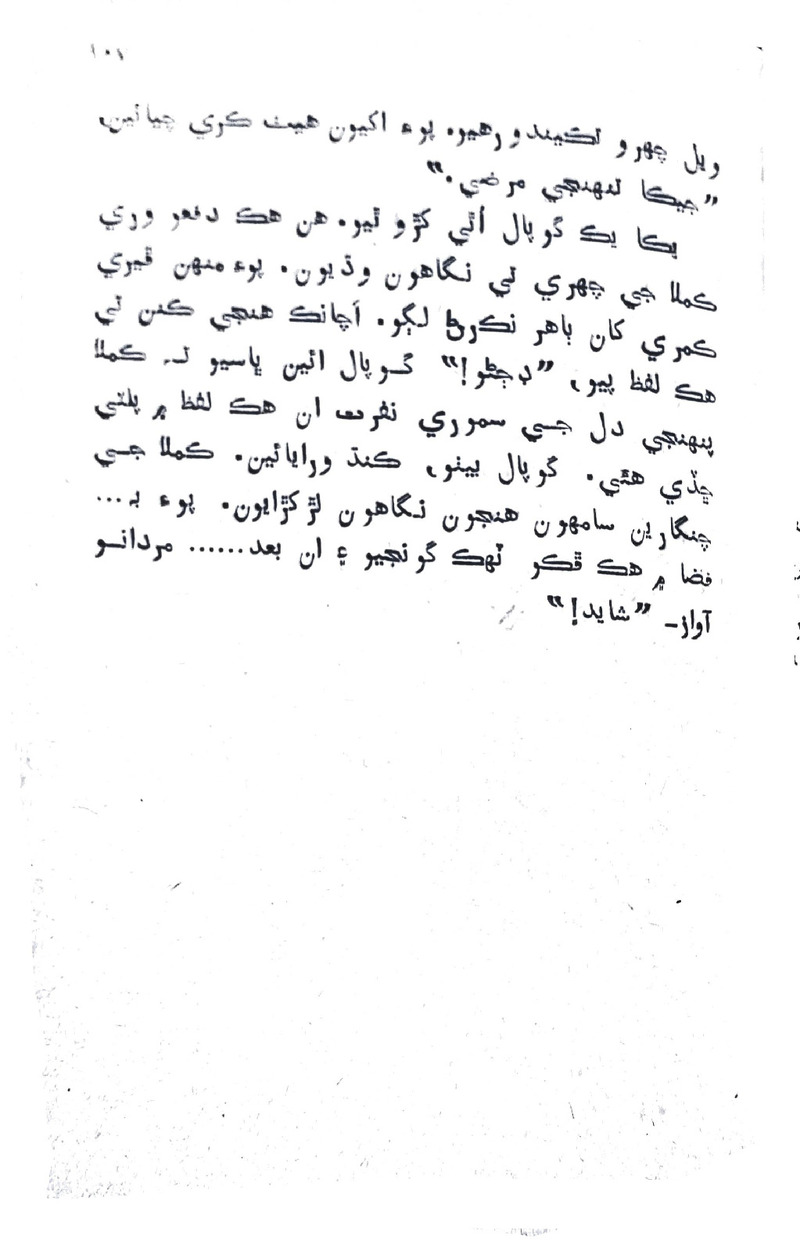 ۱۰۱
ويل چهرو تڪيندو رهيو. پوءِ اکيون هيٺ ڪري چيائين،
”جيڪا تنهنجي مرضي.“
يڪا يڪ گوپال اُٿي کڙو ٿيو. هن هڪ دفعو وري
ڪملا جي چهري تي نگاهون وڌيون. پوءِ منهن ڦيري
ڪمري کان ٻاهر نڪرڻ لڳو. اچانڪ هنجي ڪنن تي
هڪ لفظ پيو، ”ڊڄڻو!“ گوپال ائين ڀاسيو تہ ڪملا
پنهنجي دل جي سموري نفرت ان هڪ لفظ ۾ پلٽي
ڇڏي هئي. گوپال بيٺو، ڪنڌ ورايائين. ڪملا جي
چنگارين سامهون هنجون نگاهون لڙکڙايون. پوءِ بہ...
فضا ۾ هڪ ڦڪو ٽهڪ گونجيو ۽ ان بعد...... مردانو
آواز- ”شايد!“